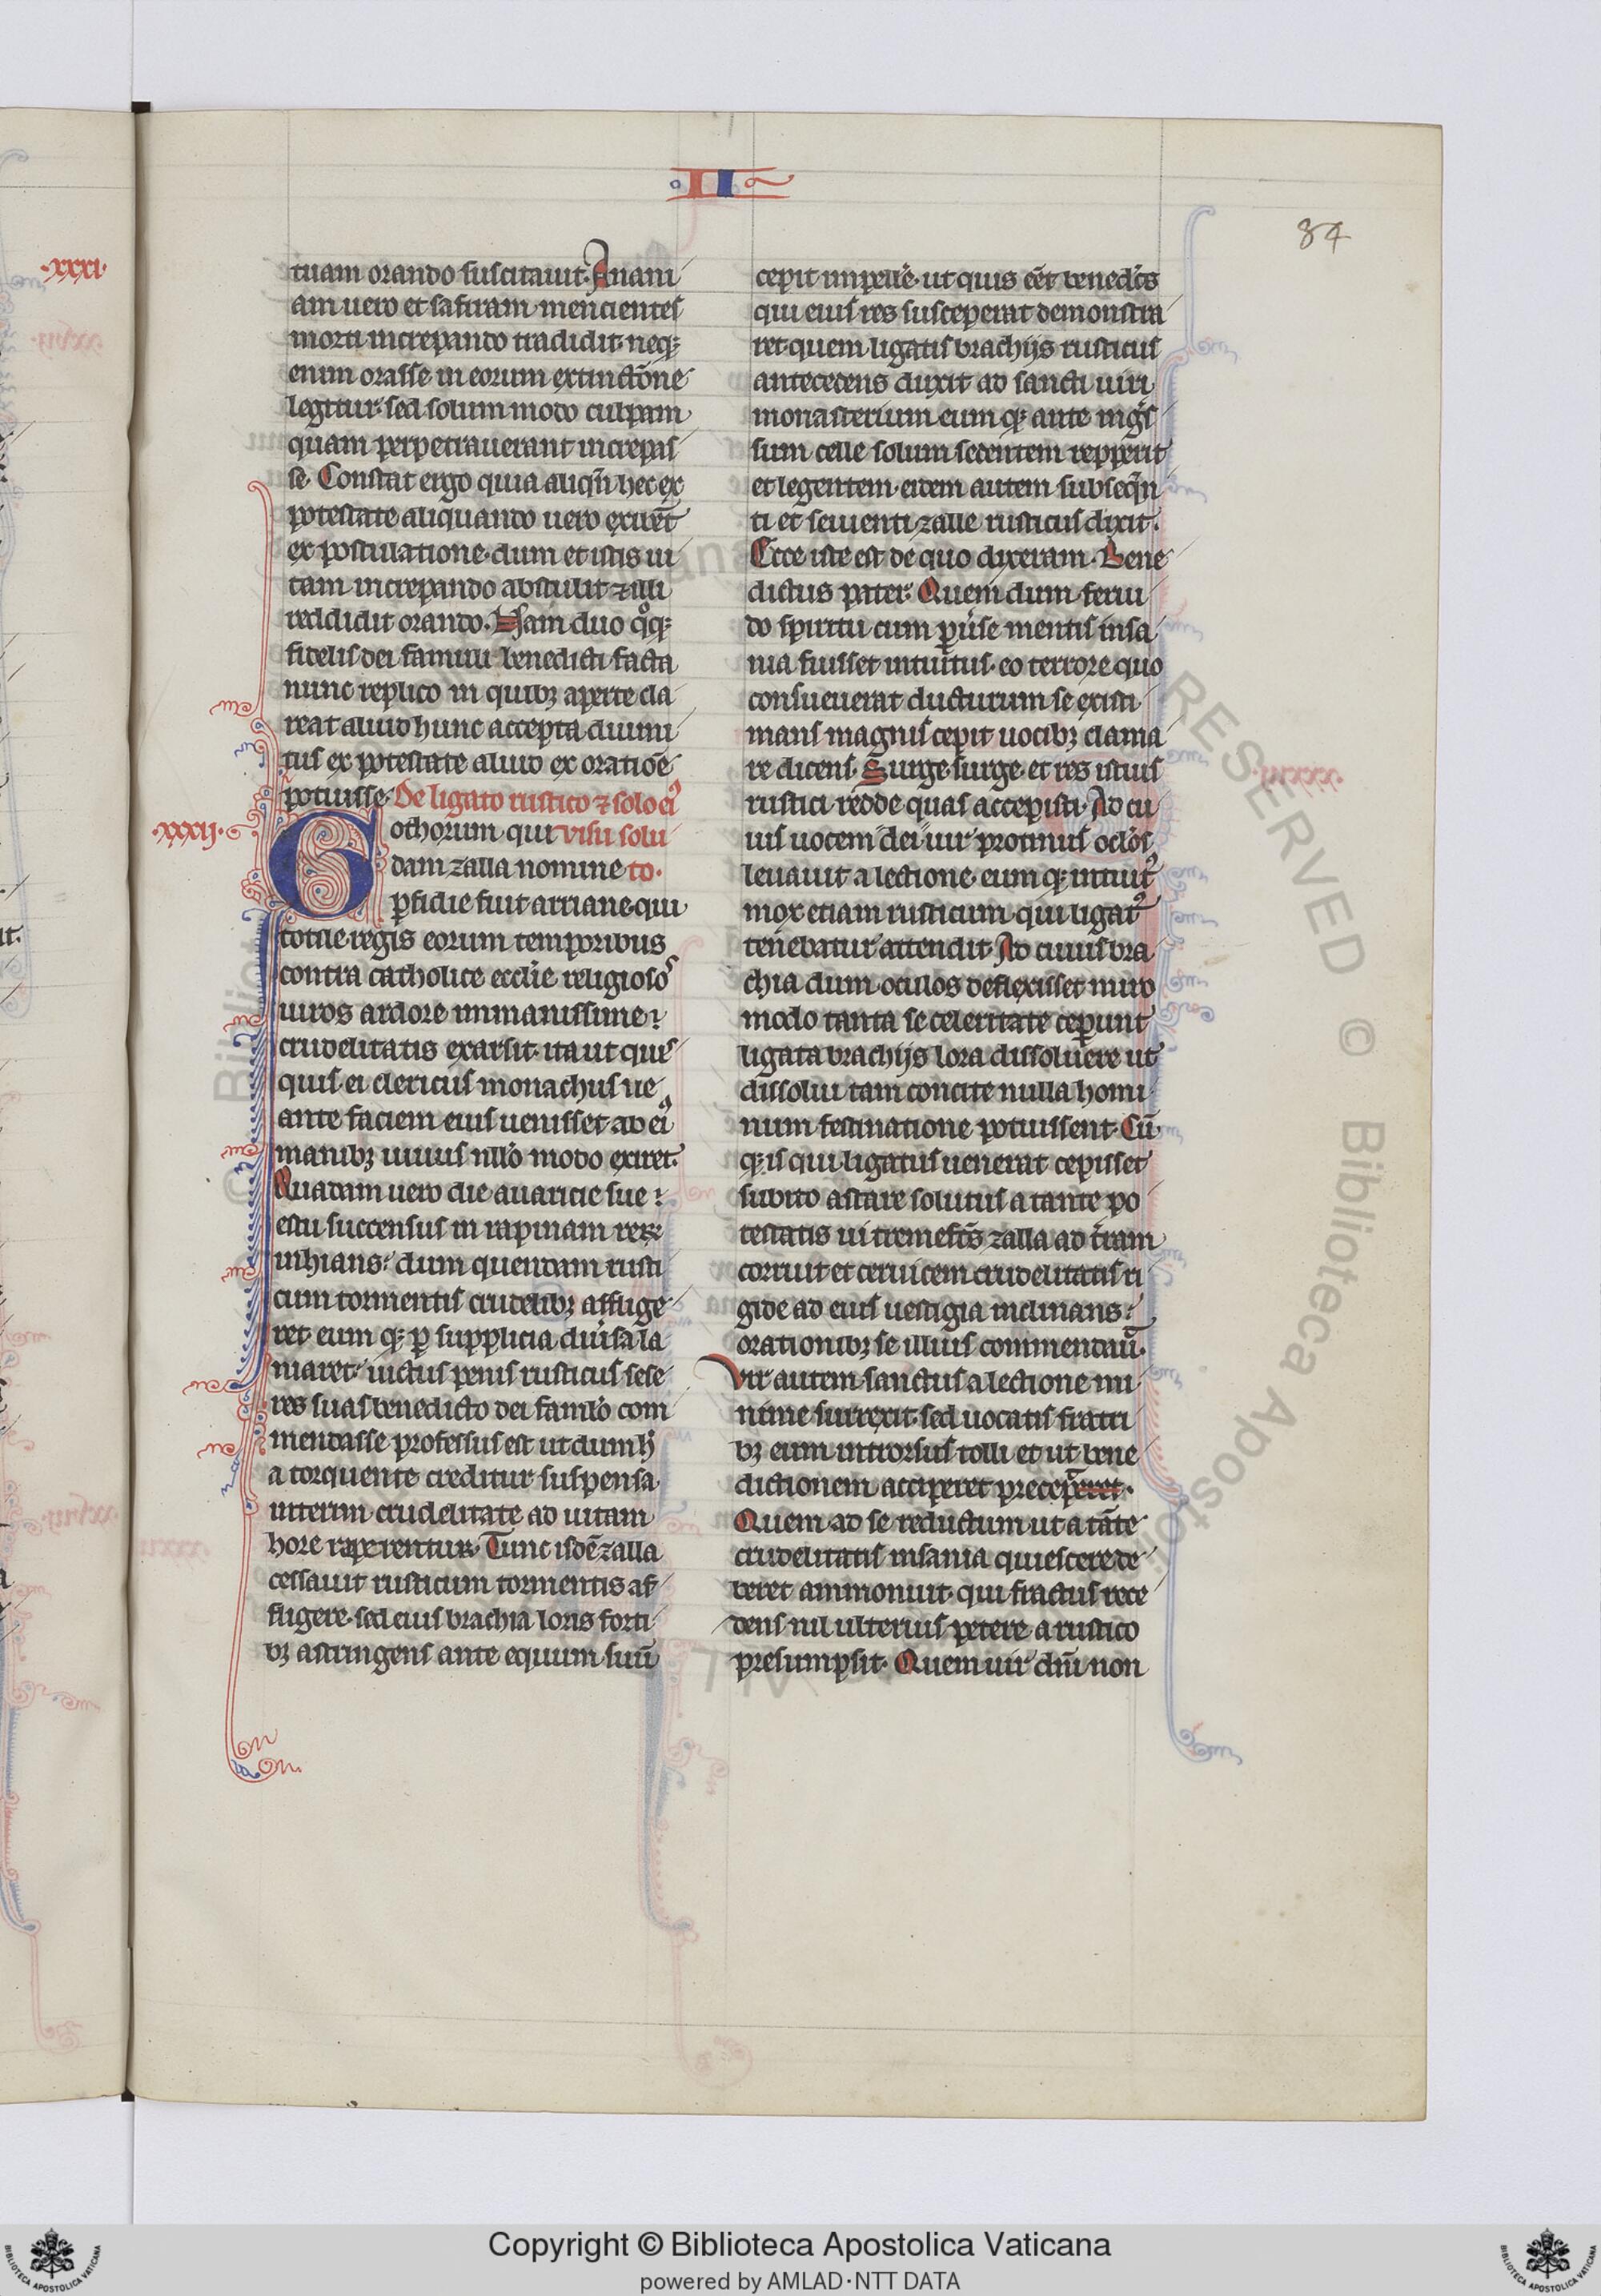 II
84
.xxxi.
tuam orando suscitauit. Anani
am uero et safiram mencientes
morti increpando tradidit. neq;
enim orasse in eorum extinctõne
legitur. sed solum modo culpam
quam perpetrauerant increpas
se. Constat ergo quia aliqñ hec ex
potestate aliquando uero exiberẽt
ex postulatione. dum et istis ui
tam increpando abstulit ⁊ illi
reddidit orando. Nam duo qͦq;
fidelis dei famuli benedicti facta
nunc replico in quibꝫ aperte cla
reat aliud hunc accepta diuini
tus ex potestate aliud ex oratiõe
potuisse. De ligato rustico ⁊ solo eiꝰ
.xxxii.
Gothorum qui uisu solu
dam zalla nomine to.
ꝑfidie fuit arriane. qui
totile regis eorum temporibus
contra catholice ecclie religioso
uiros ardore immanissime
crudelitatis exarsit. ita ut quis
quis ei clericus monachus ue
ante faciem eius uenisset. ab eiꝰ
manibꝫ uiuus nllo modo exiret.
Quadam uero die auaricie sue
estu succensus in rapinam reꝝ
inhians. dum quendam rusti
cum tormentis crudelibꝫ afflige
ret eum q; ꝑ supplicia diuersa la
niaret. uictus penis rusticus sese
res suas benedicto dei famulo com
mendasse professus est ut dum h̃
a torquente creditur suspensa
interim crudelitate ad uitam
hore raperentur. Tunc isdẽ zalla
cessauit rusticum tormentis af
fligere. sed eius brachia loris forti
bꝫ astringens ante equum suũ
cepit impelle̾. ut quis eẽt benedc̃s
qui eius res susceperat demonstra
ret. quem ligatis brachijs rusticus
antecedens duxit ad sancti uiri
monasterium eum q; ante ingres
sum celle solum sedentem repperit
et legentem. eidem autem subseqñ
ti et seuienti zalle rusticus dixit.
Ecce iste est de quo dixeram. Bene
dictus pater. Quem dum ferui
do spiritu cum ꝑuerse mentis insa
nia fuisset intuitus. eo terrore quo
consueuerat ducturum se existi
mans magnis cepit uocibꝫ clama
re dicens. Surge. surge. et res istius
rustici redde quas accepisti. Ad cu
ius uocem dei uir protinus oclos
leuauit a lectione. eum q; intuitꝰ
mox etiam rusticum qui ligatꝰ
tenebatur attendit. Ad cuius bra
chia dum oculos deflexisset miro
modo tanta se celeritate ceperunt
ligata brachijs lora dissoluere ut
dissolui tam concite nulla homi
num festinatione potuissent. Cũ
q; is qui ligatus uenerat cepisset
subito astare solutus a tante po
testatis ui tremefcs̃ zalla ad t̾ram
corruit et ceruicem crudelitatis ri
gide ad eius uestigia inclinans.
orationibꝫ se illius commendauit.
Vir autem sanctus a lectione mi
nime surrexit. sed uocatis fratri
bꝫ eum introrsus tolli et ut bene
dictionem acciperet precep̃erat.
Quem ad se reductum ut a tãte
crudelitatis insania quiescere de
beret ammonuit. qui fractus rece
dens nil ulterius petere a rustico
presumpsit. Quem uir dñi non
Copyright © Biblioteca Apostolica Vaticana
powered by AMLAD·NTT DATA